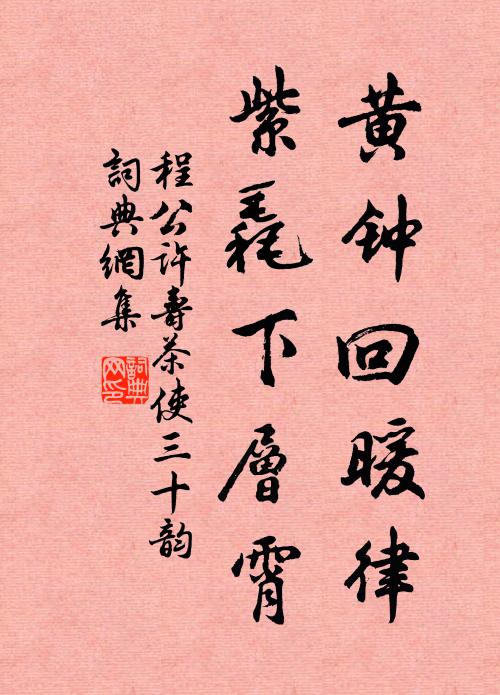 黄钟回暖律
紫毳下層霄
程公许壽茶使三十韵
詞典網集
詞典网印